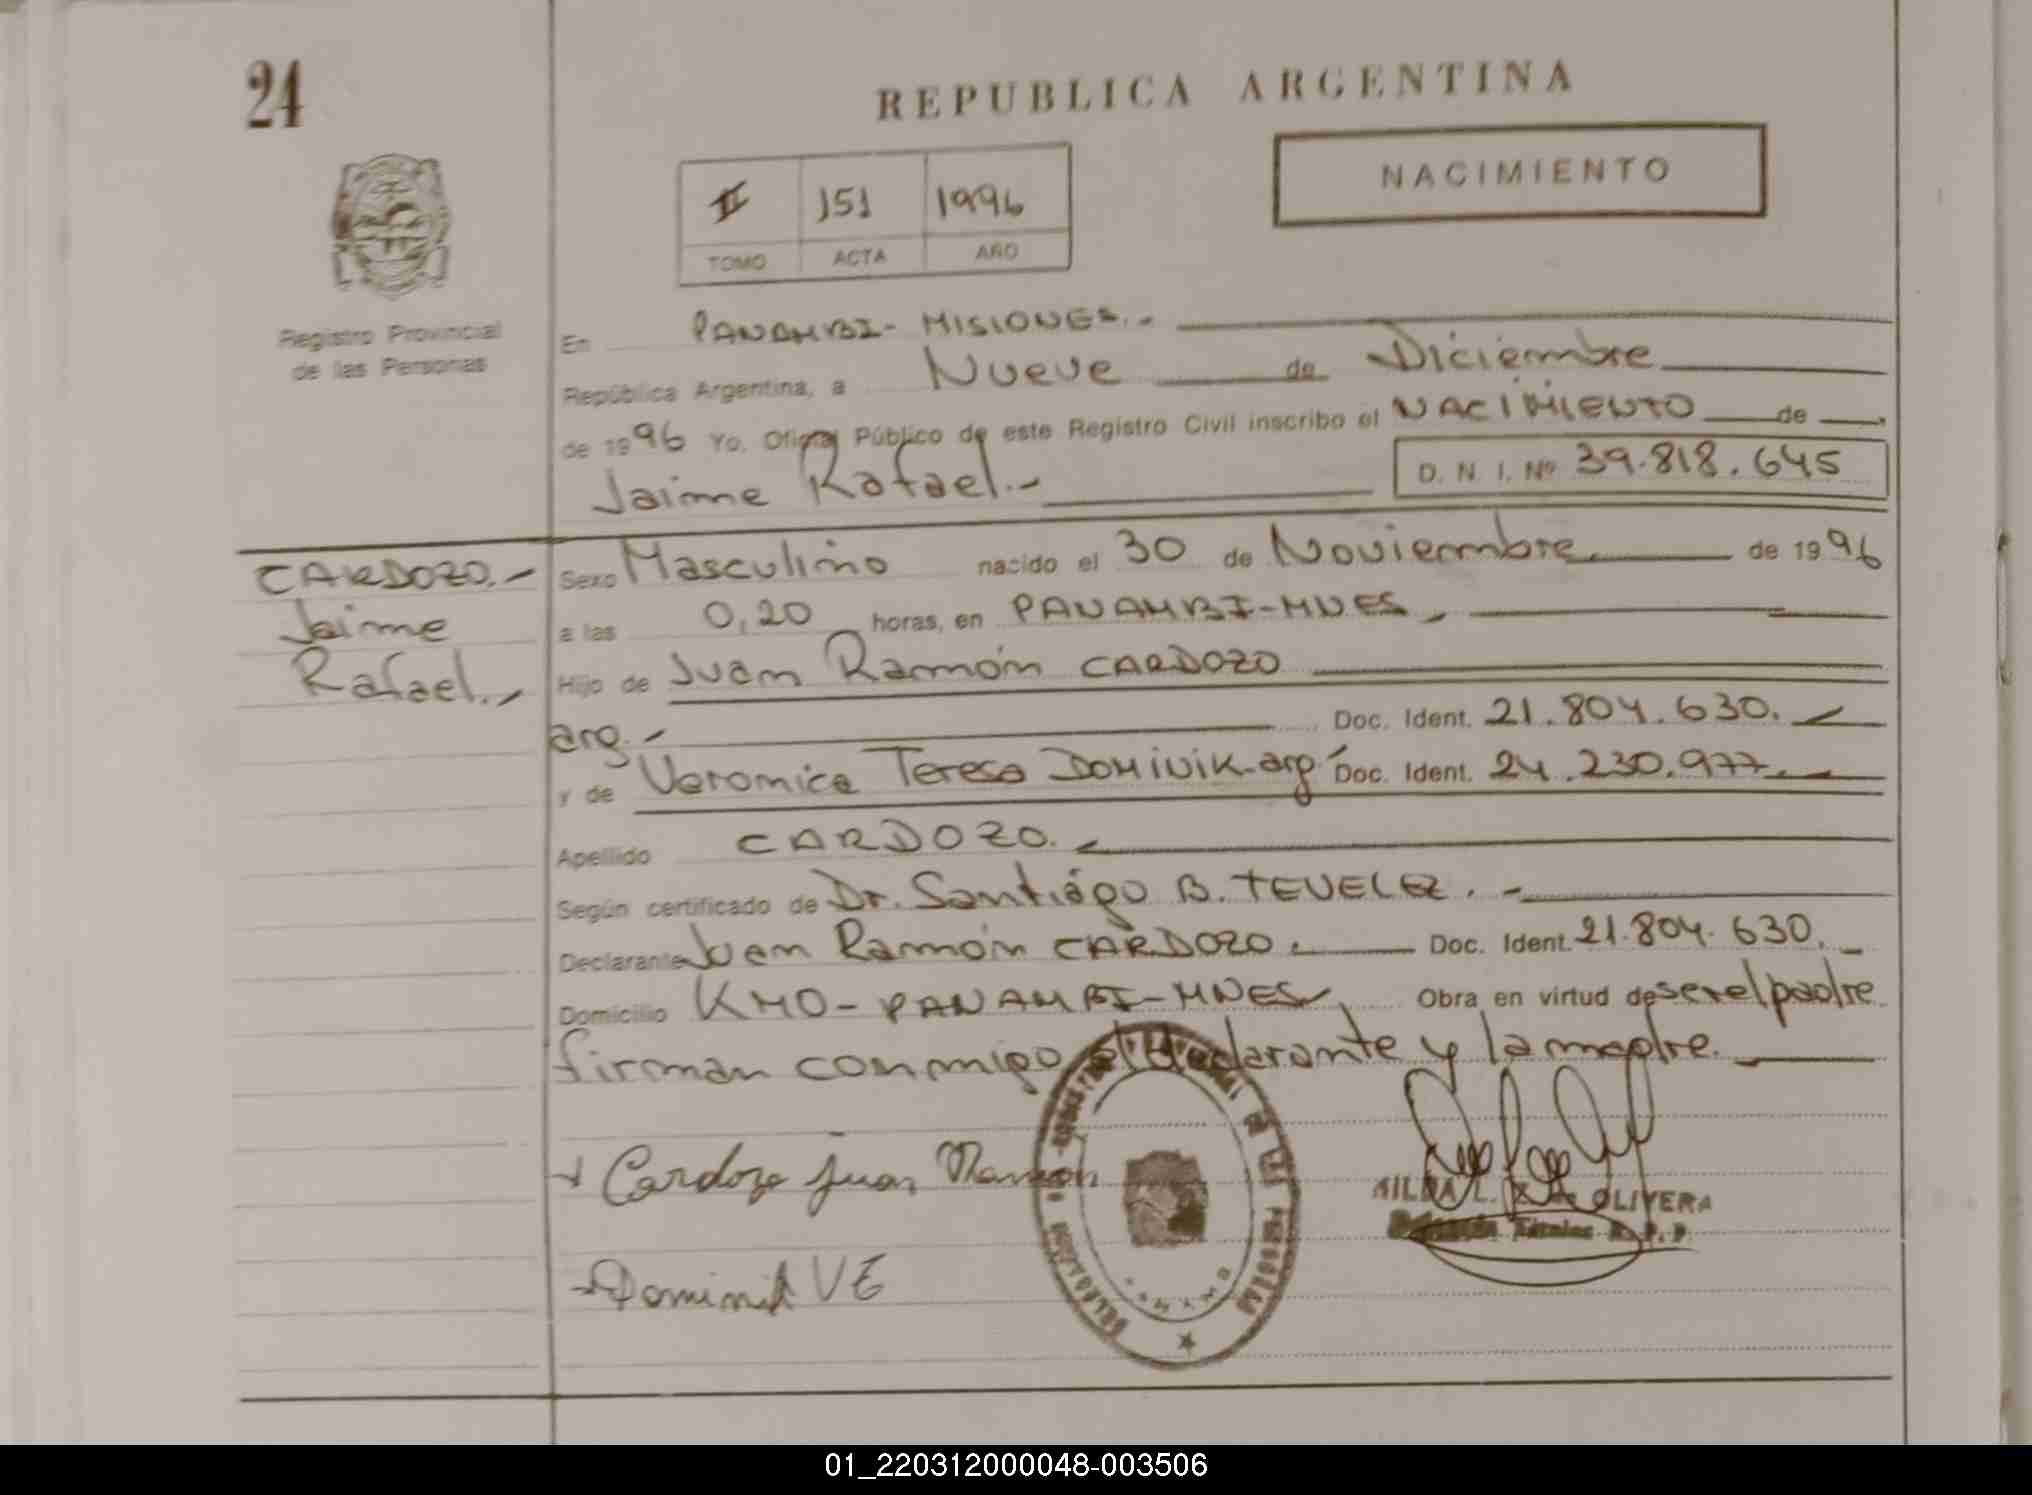 24
REPUBLICA ARGENTINA
NACIMIENTO
II 151 1996
TOMO ACTA AÑO
Registro Provincial
de las Personas
En PANAMBI - MISIONES.-
República Argentina, a Nueve de Diciembre
de 1996 Yo, Oficial Público de este Registro Civil inscribo el NACIMIENTO de
Jaime Rafael.-
D. N. I. Nº 39.818.645
CARDOZO.-
Jaime
Rafael.-
Sexo Masculino nacido el 30 de Noviembre de 1996
a las 0,20 horas, en PANAMBI-MNES.
Hijo de Juan Ramón CARDOZO
arg.- Doc. Ident. 21.804.630.-
y de Veronica Teresa DOMINIK-arg Doc. Ident. 24.230.977.-
Apellido CARDOZO.
Según certificado de Dr. Santiágo B. TEVELEZ.-
Declarante Juan Ramón CARDOZO. Doc. Ident. 21.804.630.-
Domicilio KM0-PANAMBI-MNES. Obra en virtud de ser el padre
firman conmigo el declarante y la madre.
Cardozo Juan Ramon
OLIVERA
Dominik VE
01_220312000048-003506